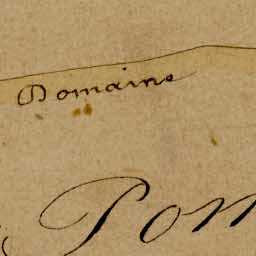 Domaine
Pon